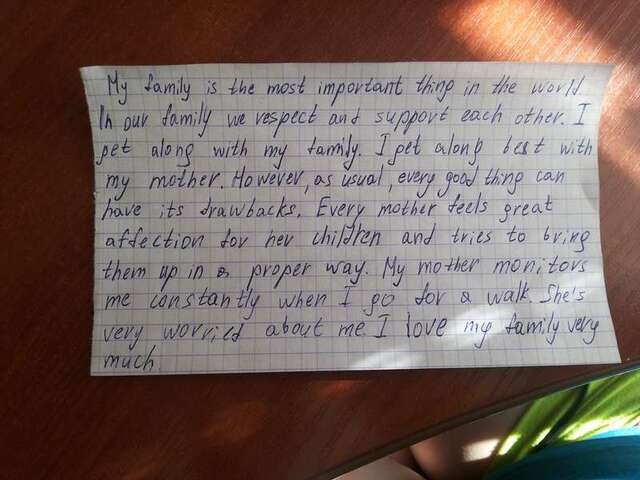 My family is the most important thing in the world
In our family we respect and support each other. I
get along with my family. I get along best with
my mother. However, as usual, every good thing can
have its drawbacks. Every mother feels great
affection for her children and tries to bring
them up in a proper way. My mother monitors
me constantly when I go for a walk. She's
very worried about me. I love my family very
much.